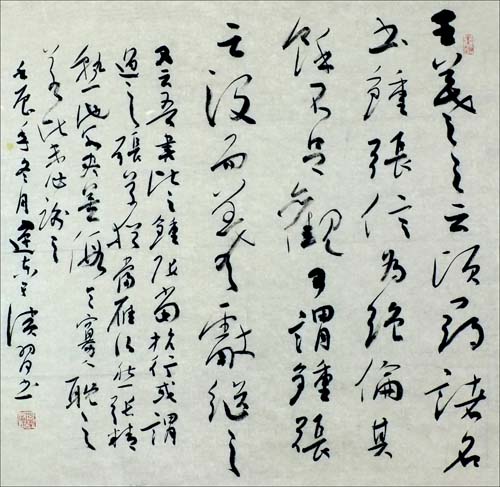 王羲之云頃尋諸名
書鍾張信為絕倫其
餘不足觀可謂鍾張
云沒而羲獻繼之
又云吾書比之鍾張當抗行或謂
過之張草猶當雁行然張精
熟池水盡墨假令寡人耽之
若此未必謝之
壬辰年冬月 書